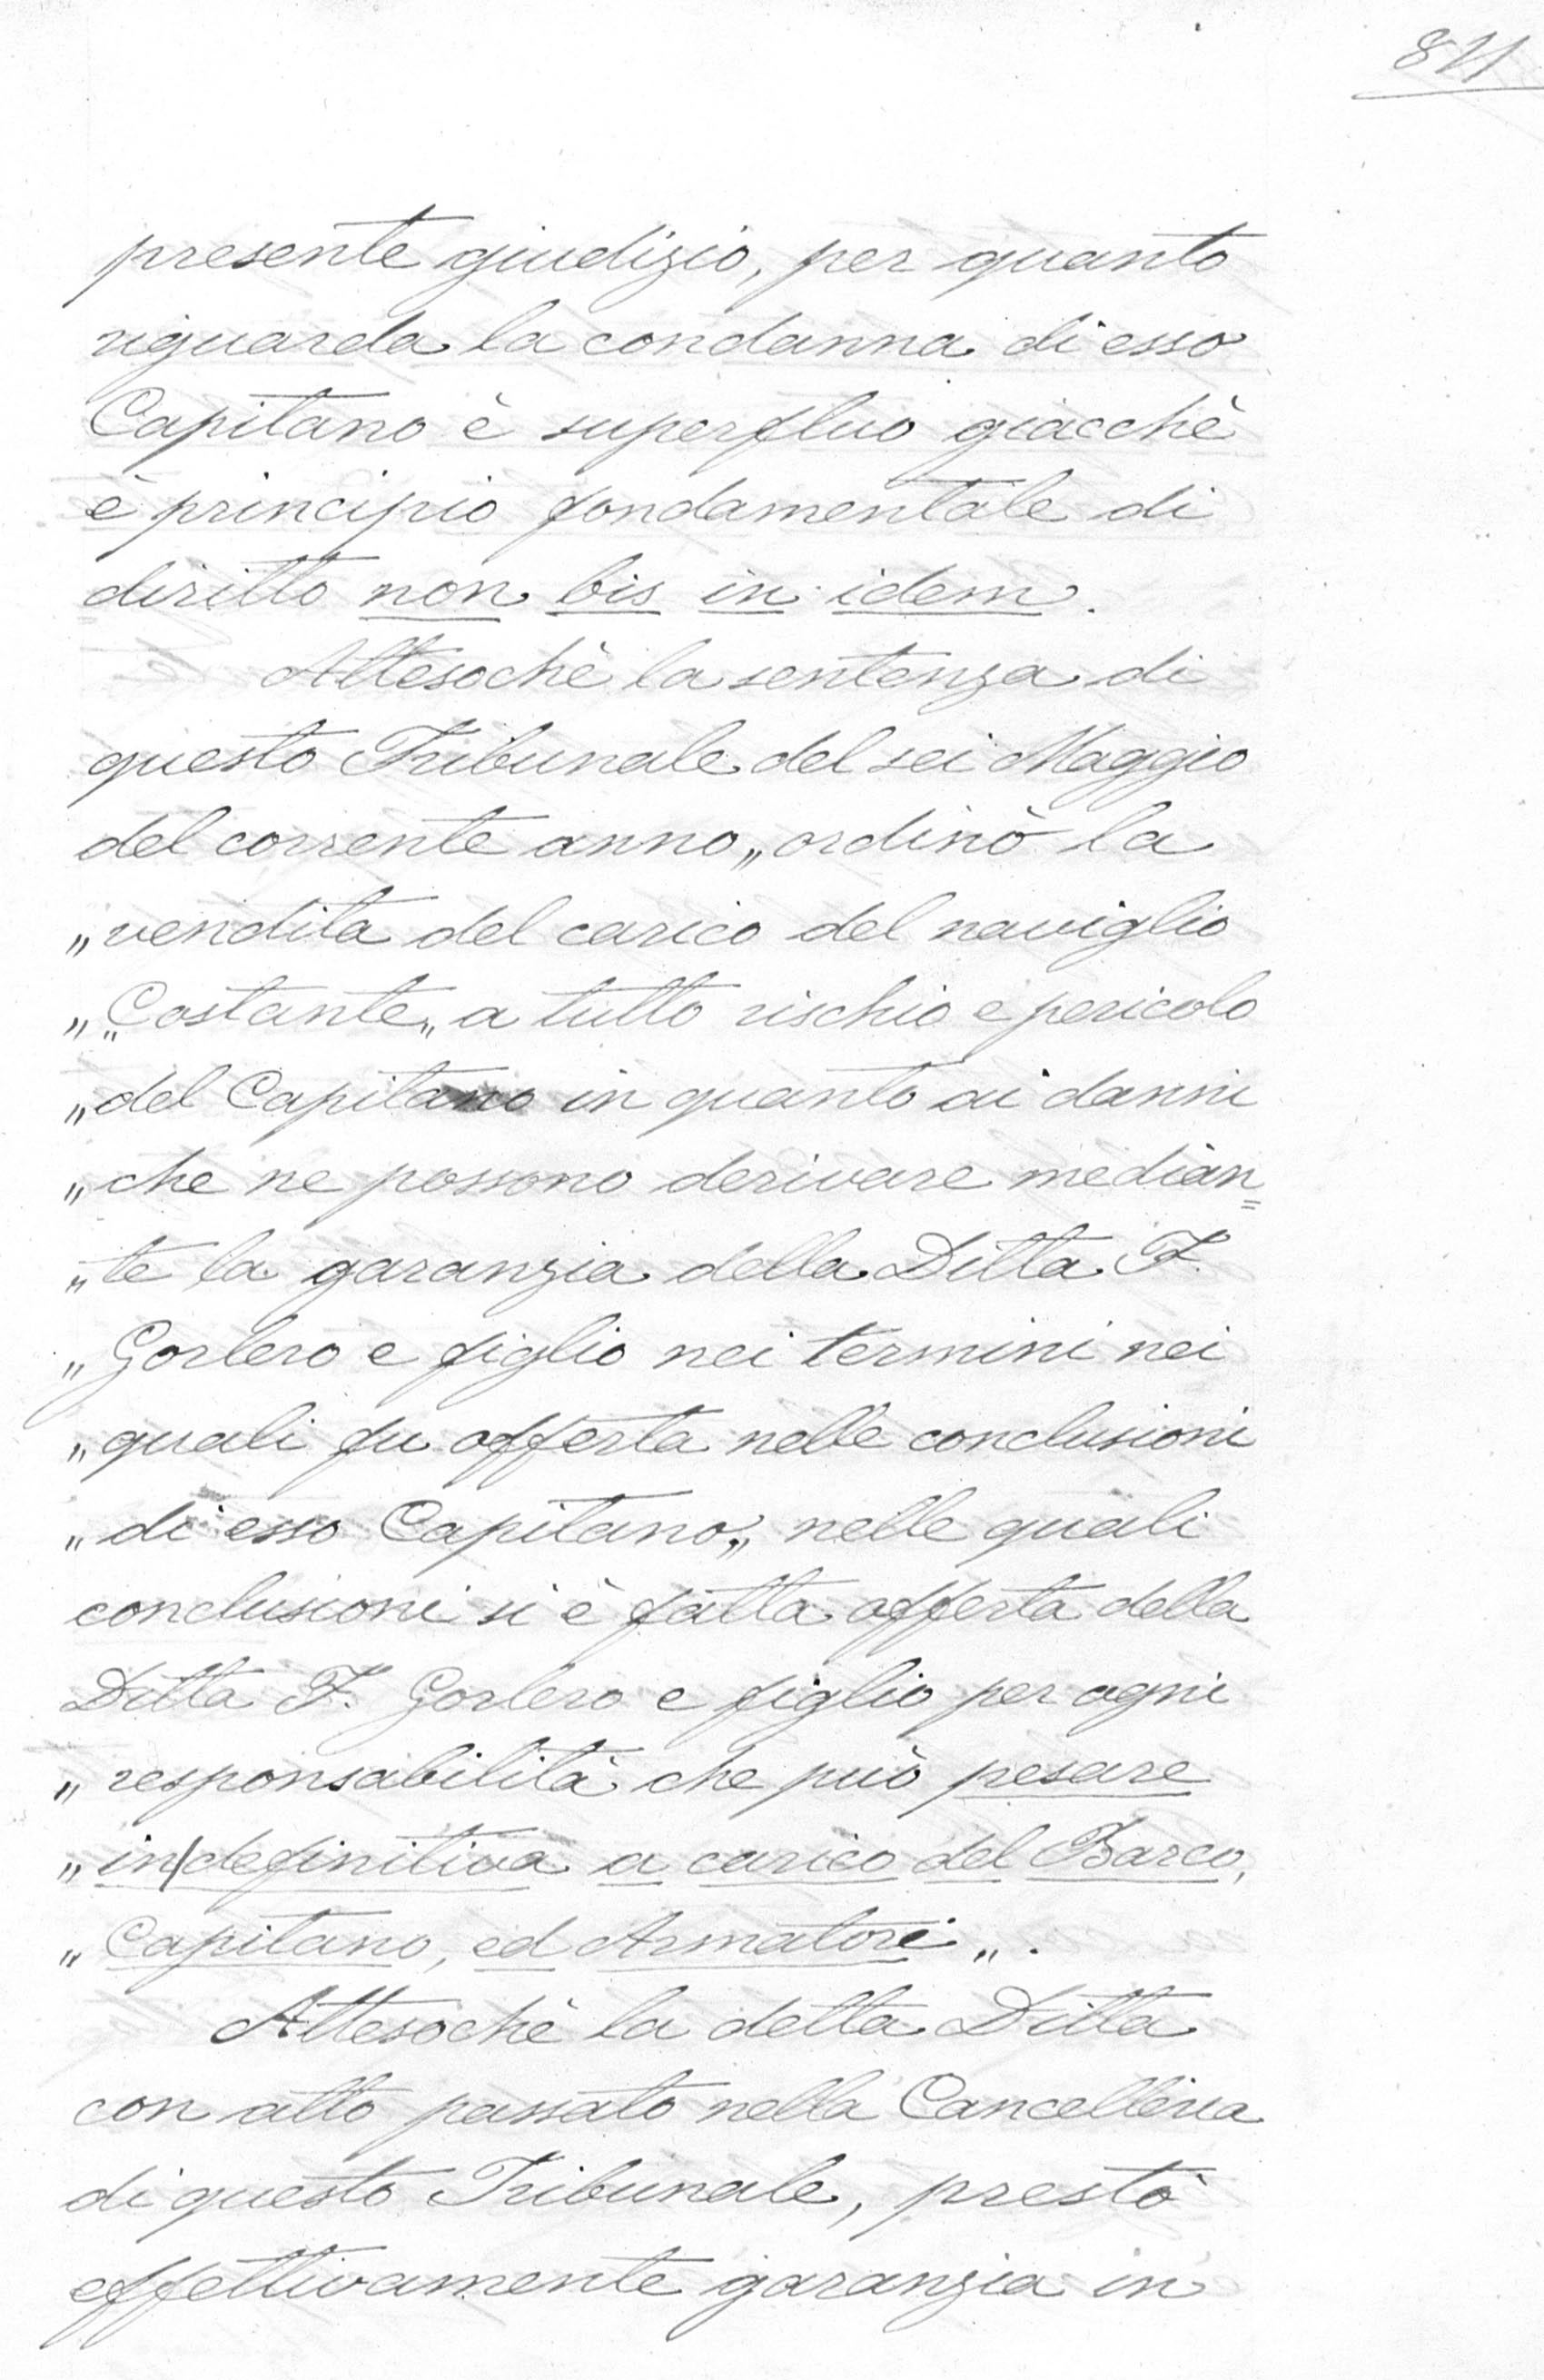 presente giudizio, per quanto
riguarda la condanna di esso
Capitano è superfluo giacchè
è principio fondamentale di
diritto non bis in idem.
Attesochè la sentenza di
questo Tribunale del sei Maggio
del corrente anno „ ordinò la
„ vendita del carico del naviglio
„ „Costante„ a tutto rischio e pericolo
„ del Capitano in quanto ai danni
„ che ne possono derivare median=
„ te la garanzia della Ditta F.
„ Gorlero e figlio nei termini nei
„ quali fu offerta nelle conclusioni
„ di esso Capitano„ nelle quali
conclusioni si è fatta offerta della
Ditta F. Gorlero e figlio per ogni
„ responsabilità che può pesare
„ in/definitiva a carico del Barco,
„ Capitano, ed Armatori „.
Attesochè la detta Ditta
con atto passato nella Cancelleria
di questo Tribunale, prestò
effettivamente garanzia in